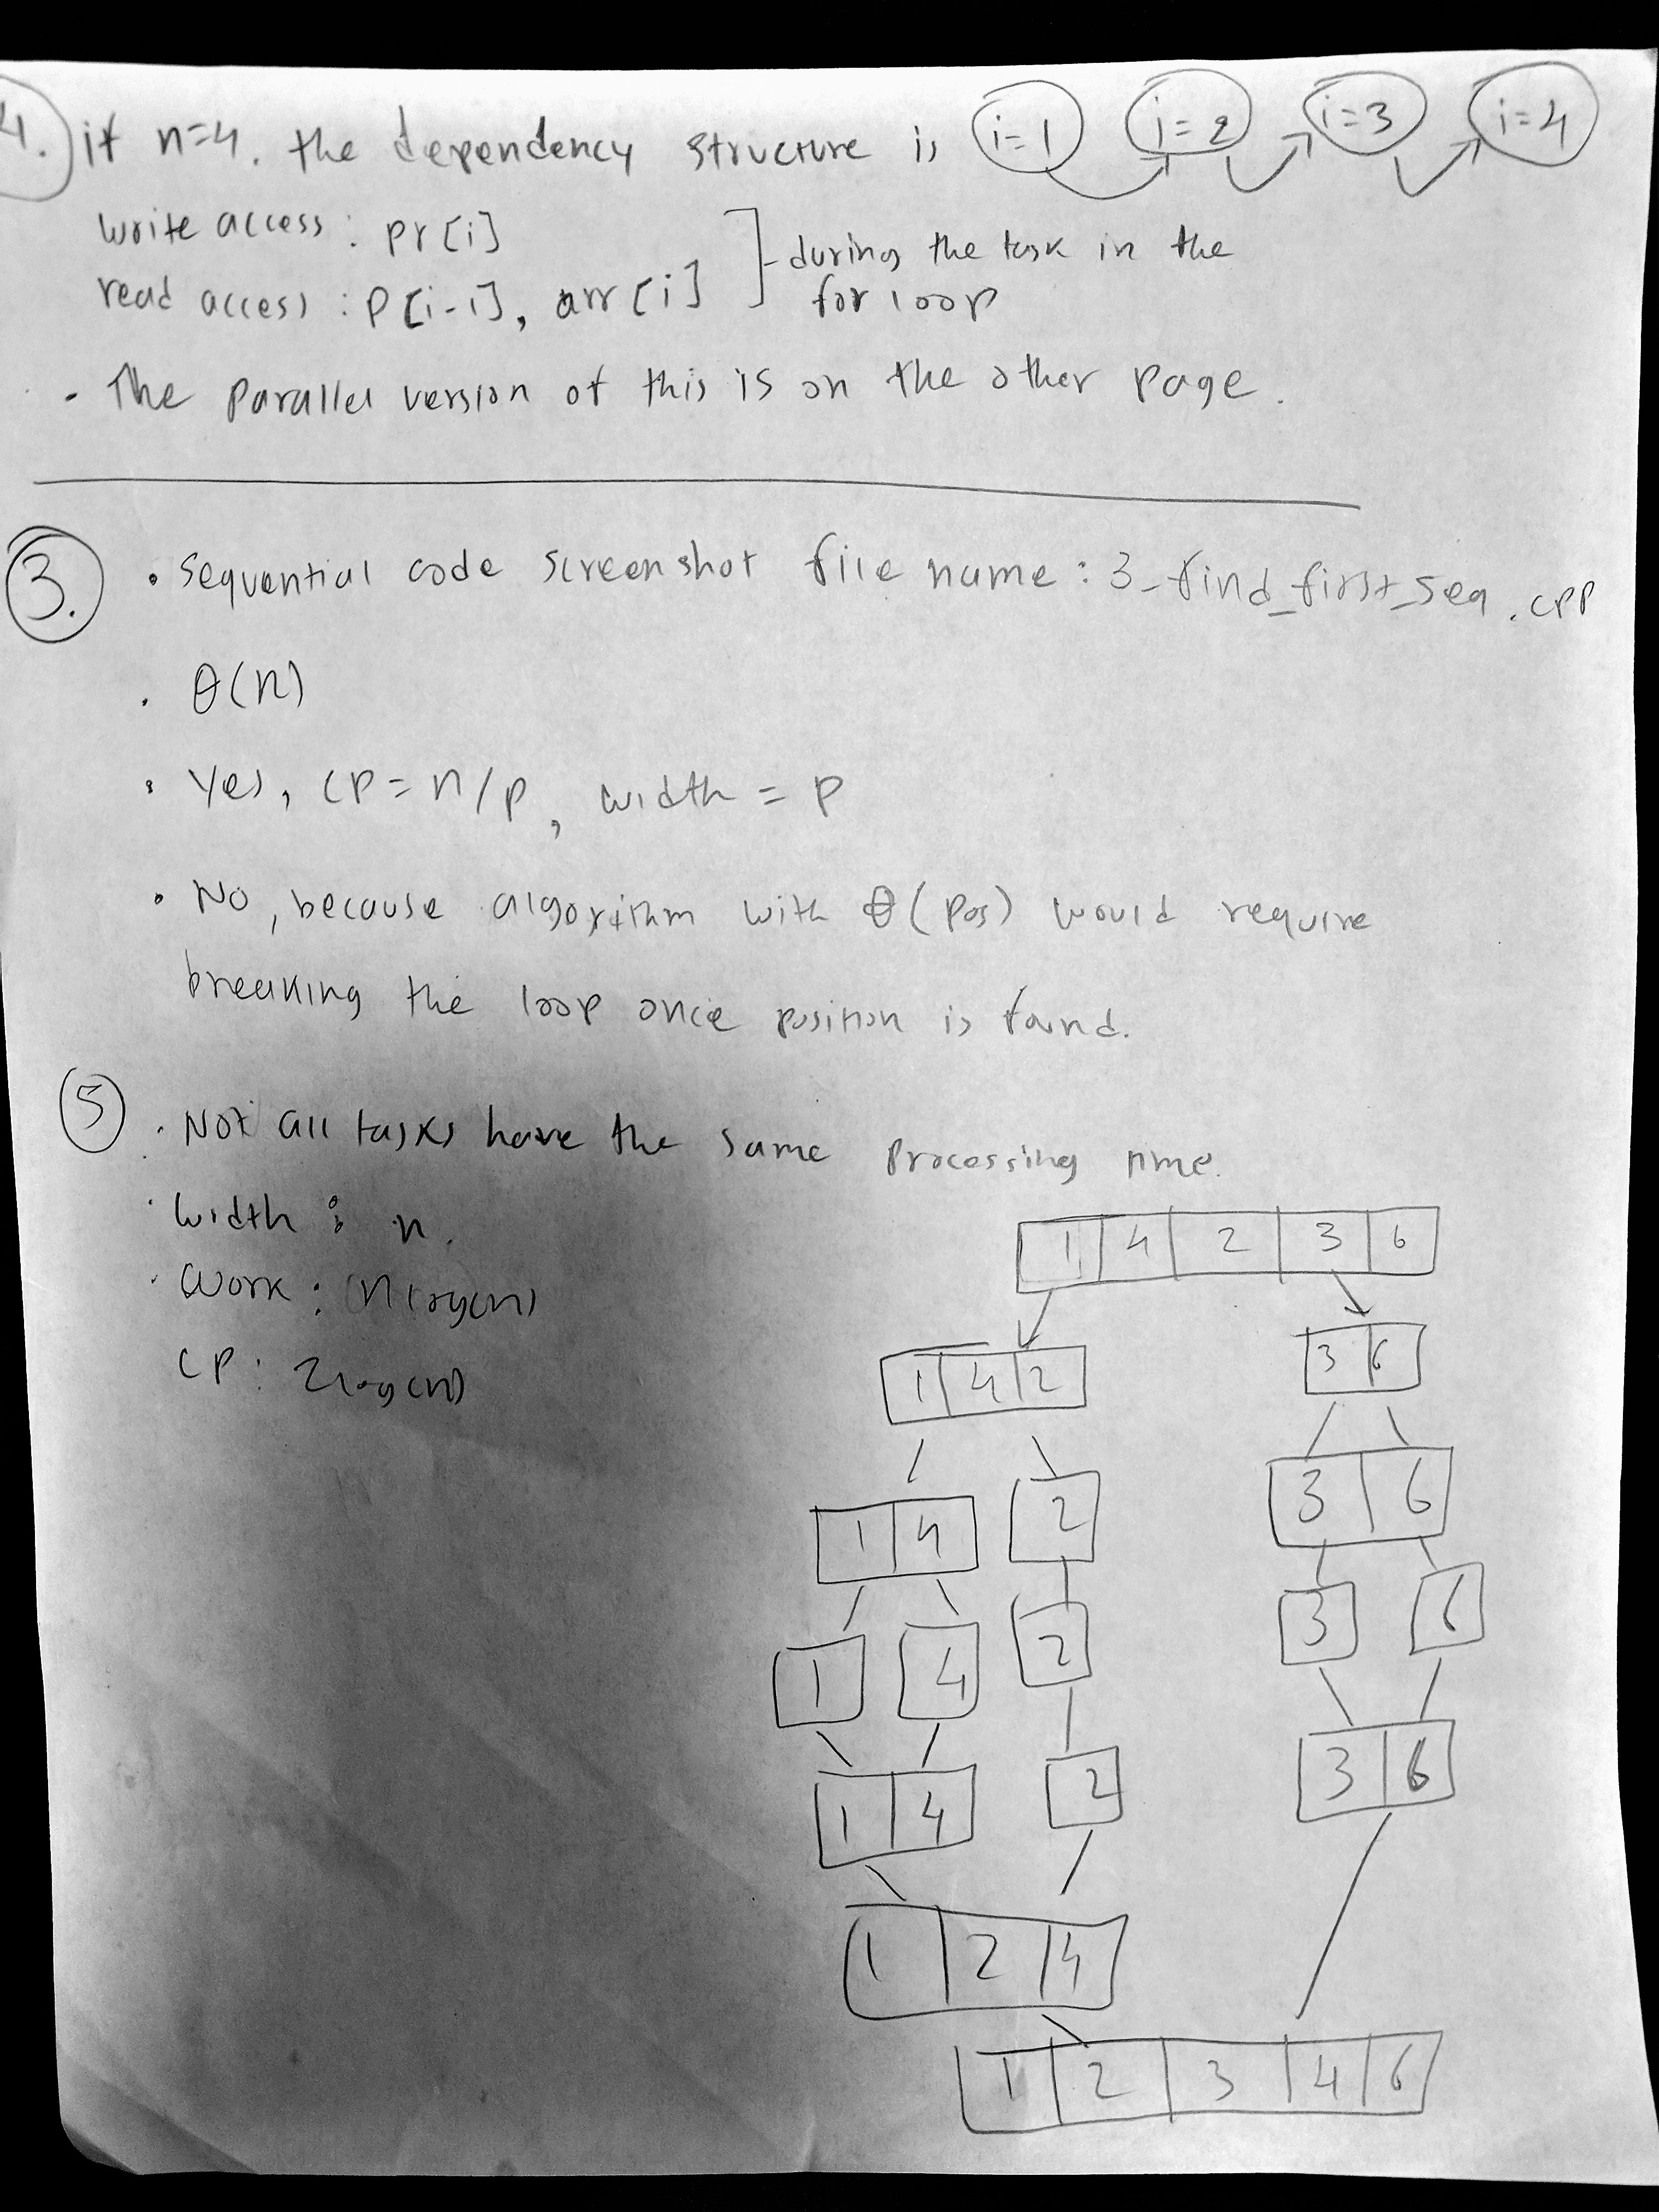 4.) if n=4. the dependency structure is i=1 i=2 i=3 i=4
write access : pr[i]
read access : p[i-1], arr[i]
during the task in the
for loop
· The parallel version of this is on the other page.
3.
· sequential code screenshot file name : 3_find_first_seq.cpp
· θ(n)
· Yes, CP = n/p, width = p
· No, because algorithm with θ(pos) would require
breaking the loop once position is found.
5
· Not all tasks have the same processing time.
· width : n.
· Work : nlog(n)
CP : 2log(n)
1 4 2 3 6
1 4 2 3 6
1 4 2 3 6
1 4 2 3 6
1 4 2 3 6
1 2 4
1 2 3 4 6